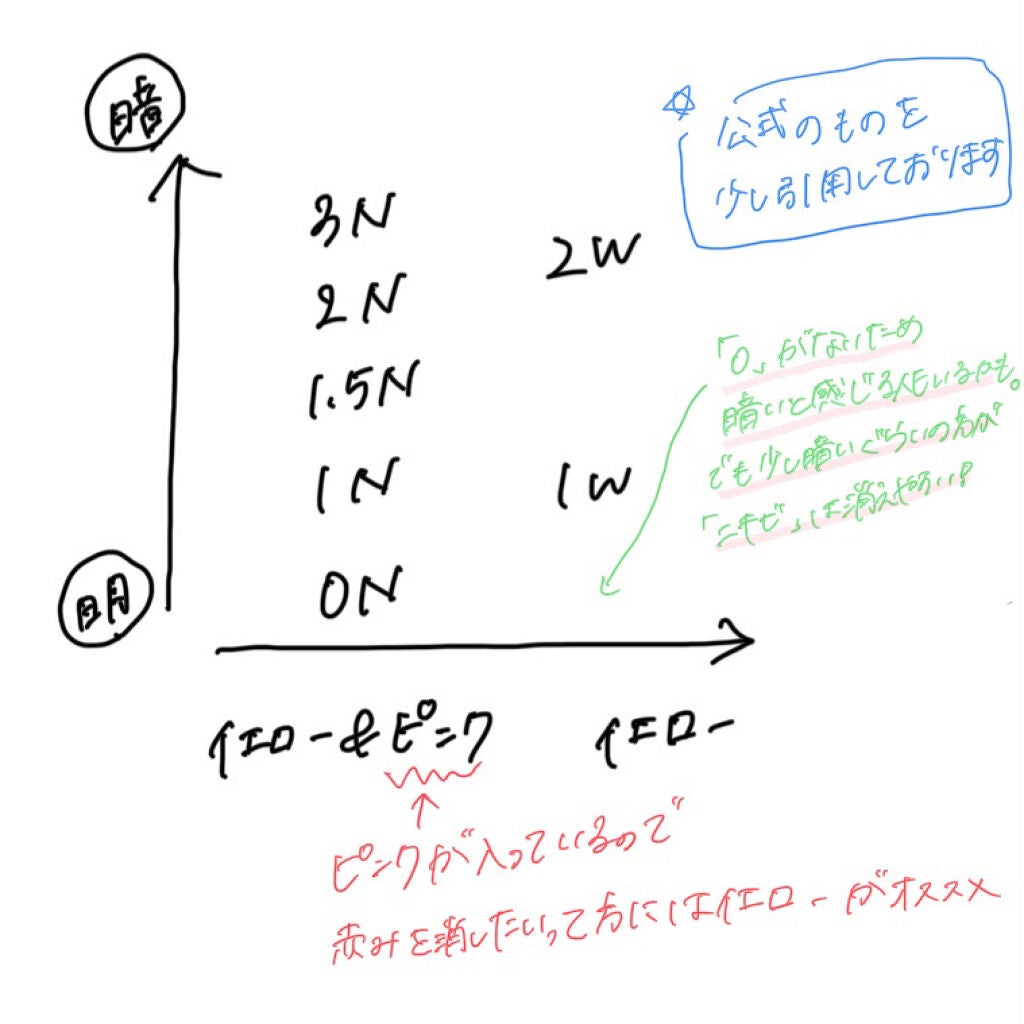 暗
☆
公式のものを
少し引用しております
3N
2W
2N
1.5N
1N
1W
0N
明
「0」がないため
暗いと感じる人もいるかも。
でも少し暗いぐらいの方が
「ニキビ」は消えやすい!
イエロー&ピンク
イエロー
ピンクが入っているので
赤みを消したいって方にはイエローがオススメ